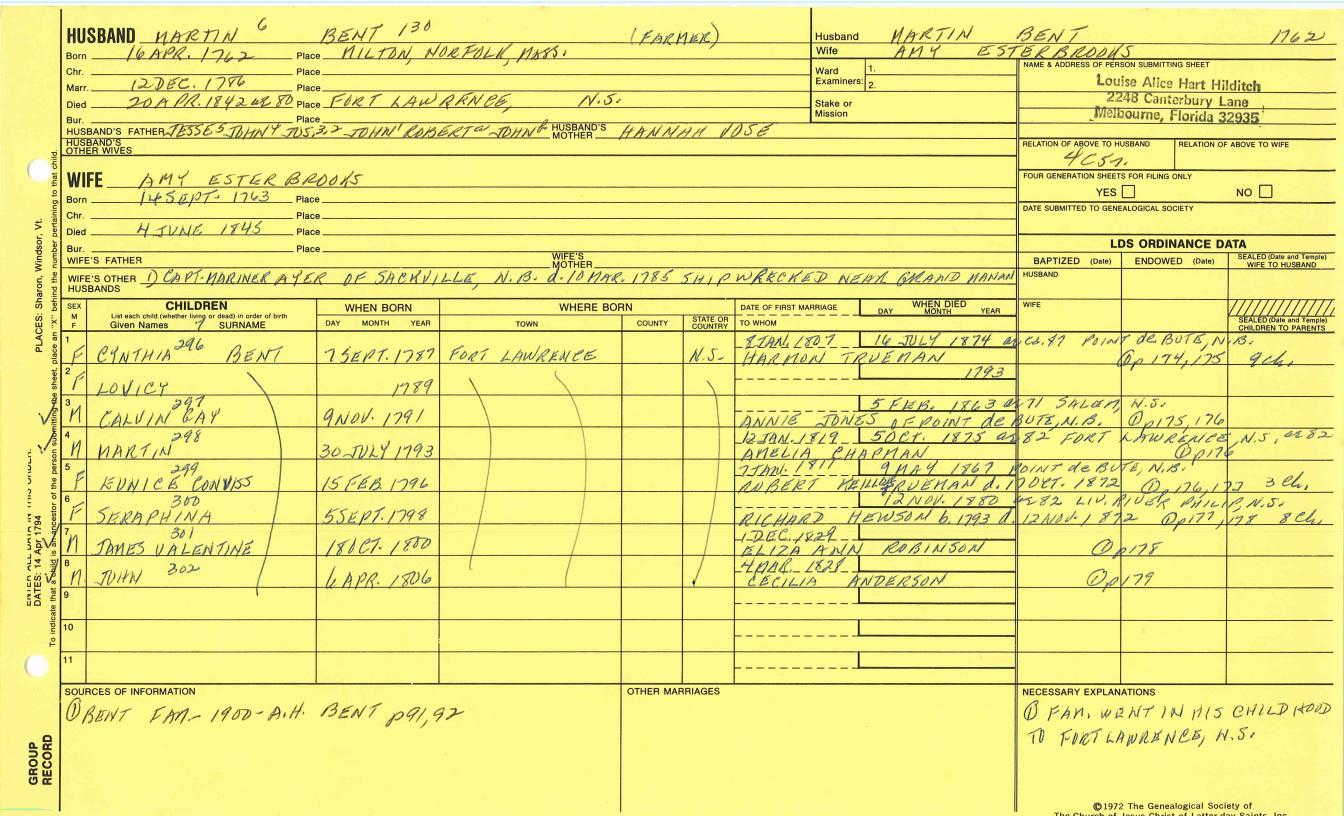 HUSBAND MARTIN 6 BENT 130 (FARMER)
Born 16 APR. 1762 Place MILTON, NORFOLK, MASS.
Chr. Place
Marr. 12 DEC. 1786 Place
Died 20 APR. 1842 ae 80 Place FORT LAWRENCE, N.S.
Bur. Place
HUSBAND'S FATHER JESSE5 JOHN4 JOS.3,2 JOHN1 ROBERT JOHN HUSBAND'S MOTHER HANNAH VOSE
HUSBAND'S OTHER WIVES
WIFE AMY ESTERBROOKS
Born 14 SEPT. 1763 Place
Chr. Place
Died 4 JUNE 1845 Place
Bur. Place
WIFE'S FATHER WIFE'S MOTHER
WIFE'S OTHER HUSBANDS 1) CAPT. MARINER AYER OF SACKVILLE, N.B. d. 10 MAR. 1785 SHIPWRECKED NEAR GRAND MANAN
Husband MARTIN BENT 1762
Wife AMY ESTERBROOKS
Ward Examiners: 1.
2.
Stake or Mission
NAME & ADDRESS OF PERSON SUBMITTING SHEET
Louise Alice Hart Hilditch
2248 Canterbury Lane
Melbourne, Florida 32935
RELATION OF ABOVE TO HUSBAND RELATION OF ABOVE TO WIFE
4C5r.
FOUR GENERATION SHEETS FOR FILING ONLY
YES NO
DATE SUBMITTED TO GENEALOGICAL SOCIETY
LDS ORDINANCE DATA
BAPTIZED (Date) ENDOWED (Date) SEALED (Date and Temple) WIFE TO HUSBAND
HUSBAND
WIFE
SEALED (Date and Temple) CHILDREN TO PARENTS
SEX M F
CHILDREN
List each child (whether living or dead) in order of birth
Given Names 7 SURNAME
WHEN BORN
DAY MONTH YEAR
WHERE BORN
TOWN COUNTY STATE OR COUNTRY
DATE OF FIRST MARRIAGE
TO WHOM
WHEN DIED
DAY MONTH YEAR
1 8 JAN. 1807 16 JULY 1874 ae ca. 87 POINT de BUTE, N.B.
F CYNTHIA 296 BENT 7 SEPT. 1787 FORT LAWRENCE N.S. HARMON TRUEMAN ① p 174, 175 9 ch.
2 1793
F LOVICY 1789
3 5 FEB. 1863 ae 71 SALEM, N.S.
M CALVIN GAY 297 9 NOV. 1791 ANNIE JONES OF POINT de BUTE, N.B. ① p 175, 176
4 12 JAN. 1819 5 OCT. 1875 ae 82 FORT LAWRENCE, N.S. ae 82
M MARTIN 298 30 JULY 1793 AMELIA CHAPMAN ① p 176
5 7 JAN. 1817 9 MAY 1867 POINT de BUTE, N.B.
F EUNICE CONVISS 299 15 FEB. 1796 ROBERT TRUEMAN d. 17 OCT. 1872 ① p 176, 177 3 ch.
6 12 NOV. 1880 ae 82 LIV. RIVER PHILIP, N.S.
F SERAPHINA 300 5 SEPT. 1798 RICHARD HEWSON b. 1793 d. 12 NOV. 1872 ① p 177, 178 8 ch.
7 1 DEC. 1829
M JAMES VALENTINE 301 18 OCT. 1800 ELIZA ANN ROBINSON ① p 178
8 4 MAR. 1828
M JOHN 302 6 APR. 1806 CECILIA ANDERSON ① p 179
9
10
11
SOURCES OF INFORMATION
① BENT FAM. - 1900 - A.H. BENT p 91, 92
OTHER MARRIAGES
NECESSARY EXPLANATIONS
① FAM. WENT IN HIS CHILDHOOD
TO FORT LAWRENCE, N.S.
©1972 The Genealogical Society of
The Church of Jesus Christ of Latter-day Saints, Inc.
GROUP RECORD
ENTER ALL DATA IN THIS ORDER:
DATES: 14 Apr 1794 PLACES: Sharon, Windsor, Vt.
To indicate that a child is an ancestor of the person submitting the sheet, place an "X" behind the number pertaining to that child.